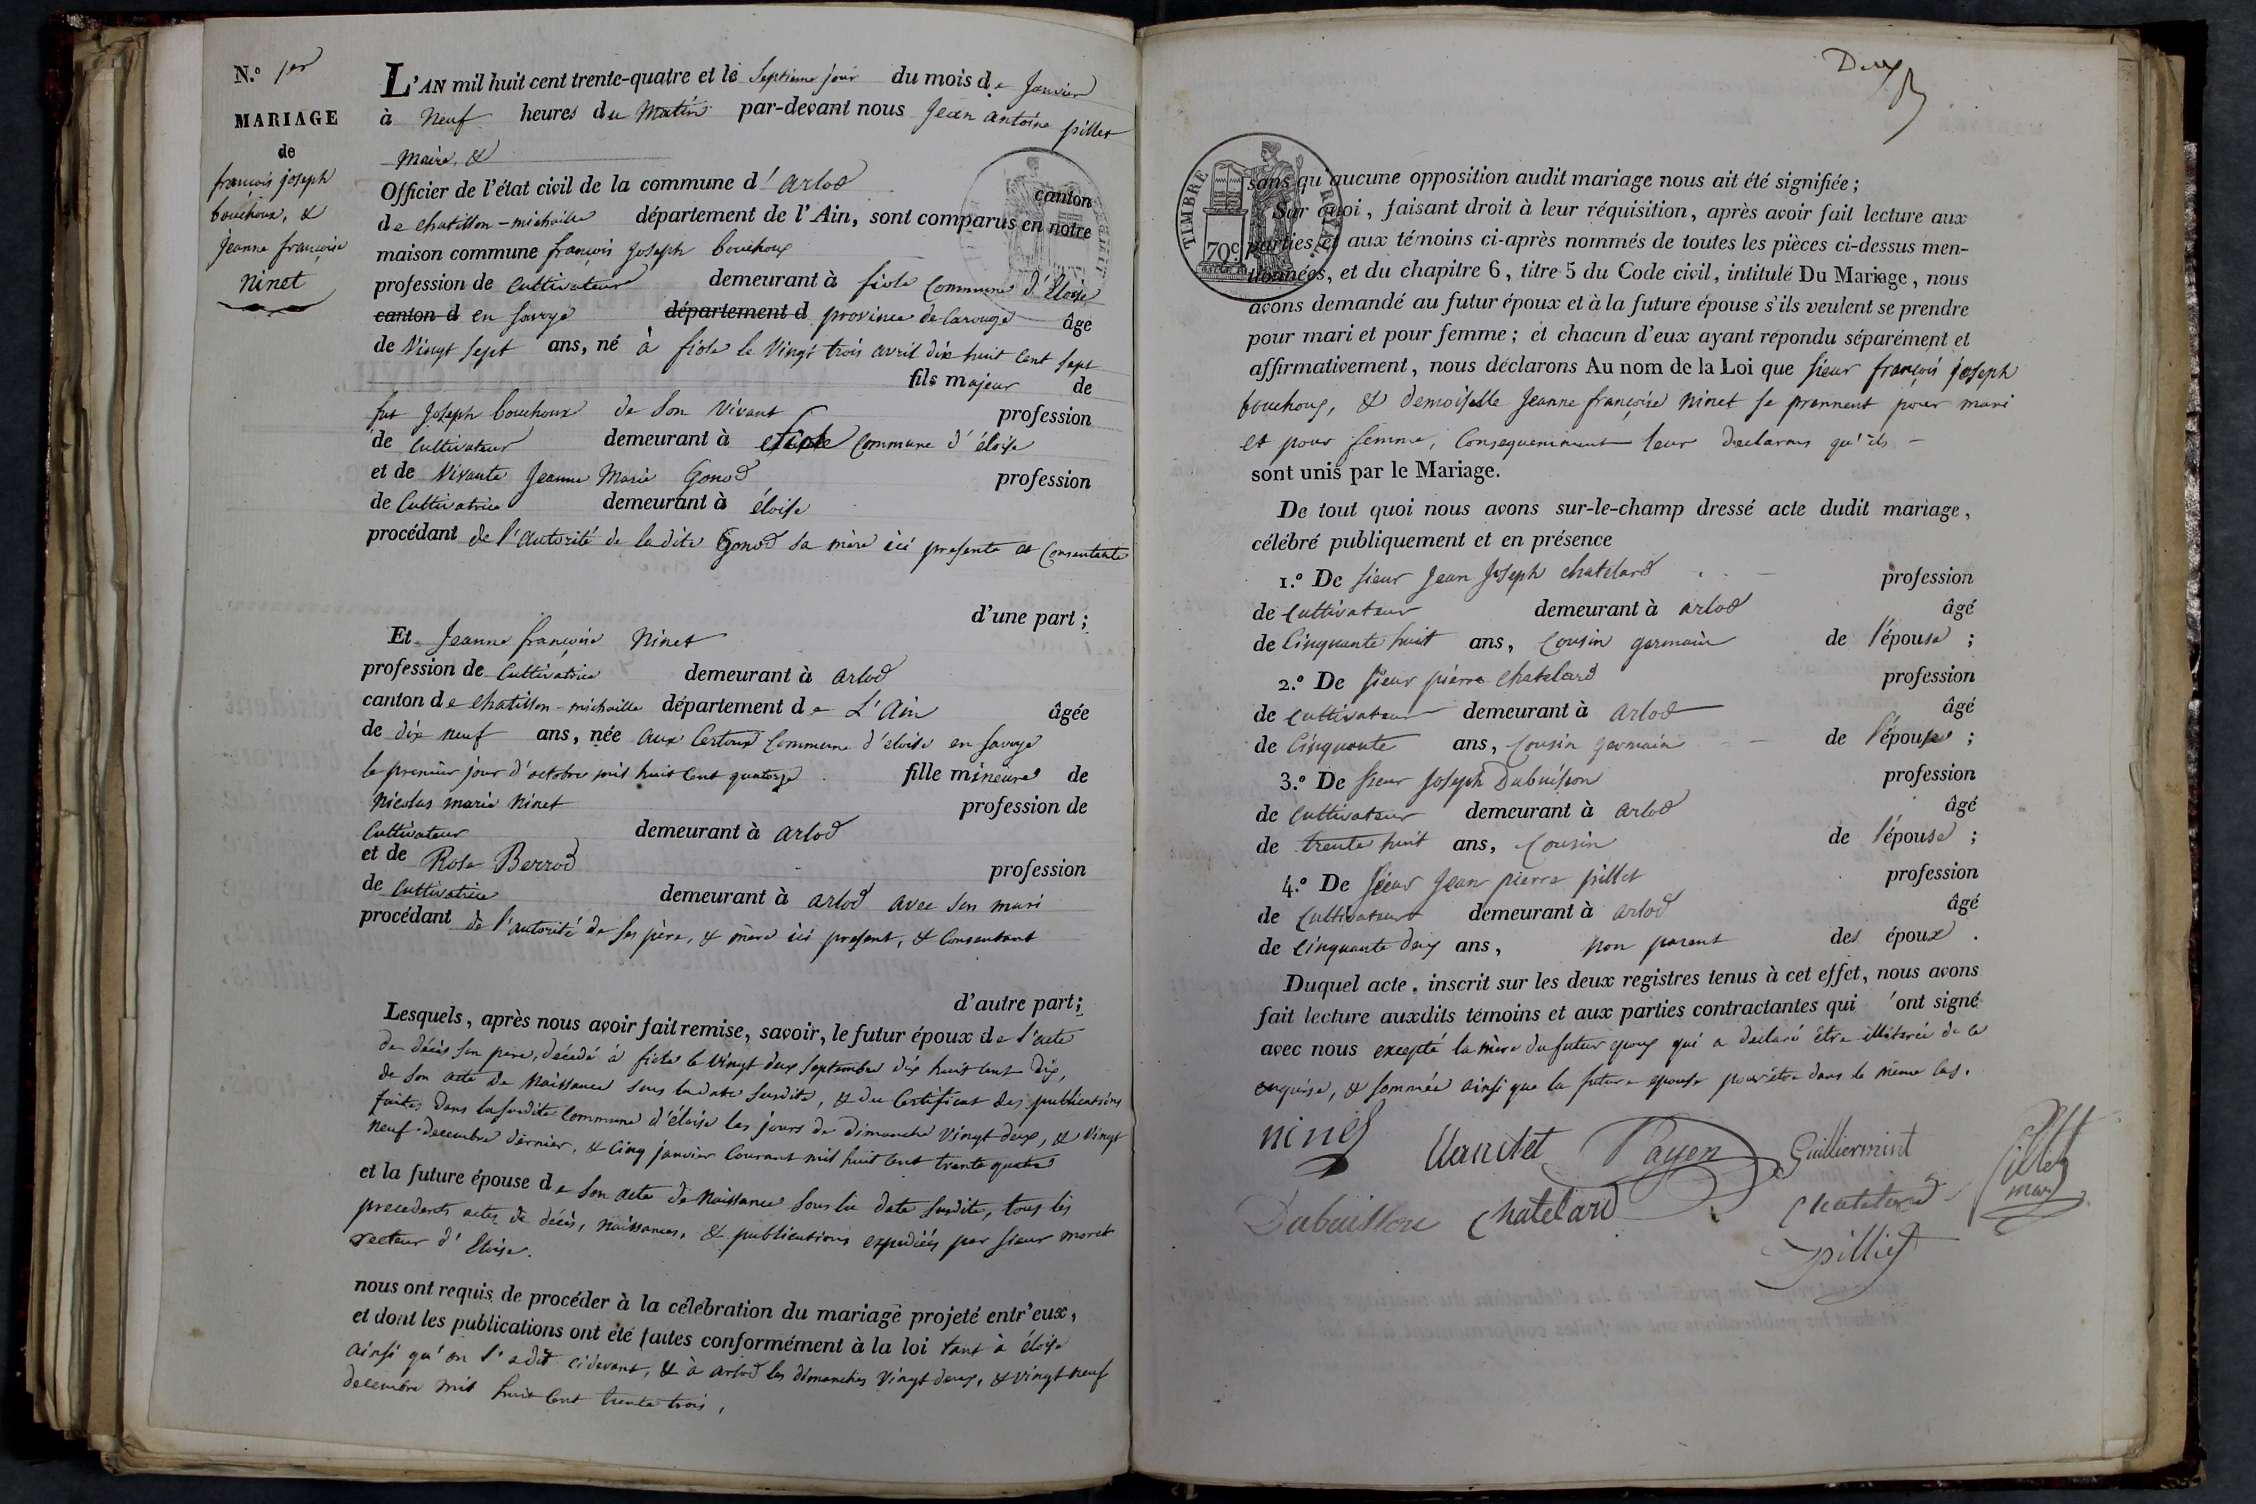 N.º 1er
MARIAGE
de
françois joseph
bouchoux, &
Jeanne françoise
Ninet
L'AN mil huit cent trente-quatre et le septieme jour du mois de Janvier
à Neuf heures du Matin par-devant nous Jean antoine pillet
Maire, &
Officier de l'état civil de la commune d'arlod canton
de chatillon-michaille département de l'Ain, sont comparus en notre
maison commune françois Joseph bouchoux
profession de Cultivateur demeurant à fiole Commune d'Eloise
canton d en Savoye département d province de Carouge âgé
de Vingt sept ans, né à fiole le Vingt trois avril dix huit Cent sept
fils majeur de
fut Joseph bouchoux de son Vivant profession
de Cultivateur demeurant à fiole Commune d'éloise
et de Vivante Jeanne Marie Gonod profession
de Cultivatrice demeurant à éloise
procédant de l'autorité de la dite Gonod sa mère ici presente et Consentante
d'une part ;
Et Jeanne françoise Ninet
profession de Cultivatrice demeurant à arlod
canton de chatillon-michaille département de L'Ain âgée
de dix neuf ans, née aux Certoux Commune d'éloise en Savoye
le premier jour d'octobre mil huit Cent quatorze fille mineure de
Nicolas marie Ninet profession de
Cultivateur demeurant à arlod
et de Rose Berrod profession
de Cultivatrice demeurant à arlod avec son mari
procédant de l'autorité de ses père, & mère ici present, & Consentant
d'autre part;
Lesquels, après nous avoir fait remise, savoir, le futur époux de l'acte
de décès son pere, décédé à fiole le Vingt deux septembre dix huit Cent Dix,
de son acte de Naissance sous la date susdite, & du Certificat des publications
faites dans la susdite Commune d'éloise les jours de dimanche Vingt deux, & Vingt
Neuf decembre dernier, & Cinq janvier Courant mil huit Cent trente quatre
et la future épouse de son acte de Naissance sous la date susdite, tous les
precedents actes de décès, Naissances, & publications expediés par sieur moret
recteur d'Eloise.
nous ont requis de procéder à la célébration du mariage projeté entr'eux,
et dont les publications ont été faites conformément à la loi tant à éloise
ainsi qu'on l'a dit cidevant, & à arlod les dimanches Vingt deux, & Vingt neuf
decembre mil huit Cent trente trois,
Deux
TIMBRE ROYAL
70c
sans qu'aucune opposition audit mariage nous ait été signifiée ;
Sur quoi, faisant droit à leur réquisition, après avoir fait lecture aux
parties et aux témoins ci-après nommés de toutes les pièces ci-dessus men-
tionnées, et du chapitre 6, titre 5 du Code civil, intitulé Du Mariage, nous
avons demandé au futur époux et à la future épouse s'ils veulent se prendre
pour mari et pour femme ; et chacun d'eux ayant répondu séparément et
affirmativement, nous déclarons Au nom de la Loi que sieur françois joseph
bouchoux, & demoiselle Jeanne françoise Ninet se prennent pour mari
et pour femme, Consequemment leur declarons qu'ils -
sont unis par le Mariage.
De tout quoi nous avons sur-le-champ dressé acte dudit mariage,
célébré publiquement et en présence
1.º De sieur Jean Joseph chatelard profession
de Cultivateur demeurant à arlod âgé
de Cinquante huit ans, Cousin germain de l'épouse ;
2.º De sieur pierre chatelard profession
de Cultivateur demeurant à arlod âgé
de Cinquante ans, Cousin germain de l'épouse ;
3.º De sieur Joseph Dubuisson profession
de Cultivateur demeurant à arlod âgé
de trente huit ans, Cousin de l'épouse ;
4.º De sieur Jean pierre pillet profession
de Cultivateur demeurant à arlod âgé
de Cinquante deux ans, Non parent des époux .
Duquel acte, inscrit sur les deux registres tenus à cet effet, nous avons
fait lecture auxdits témoins et aux parties contractantes qui 'ont signé
avec nous excepté la mère du futur epoux qui a declaré être illitérée de ce
enquise, & sommée ainsi que la future epouse pour être dans le même Cas.
ninet
Payen
Guilliermint
Pillet
maire
Dubuisson
chatelard
Chatelard
pillet